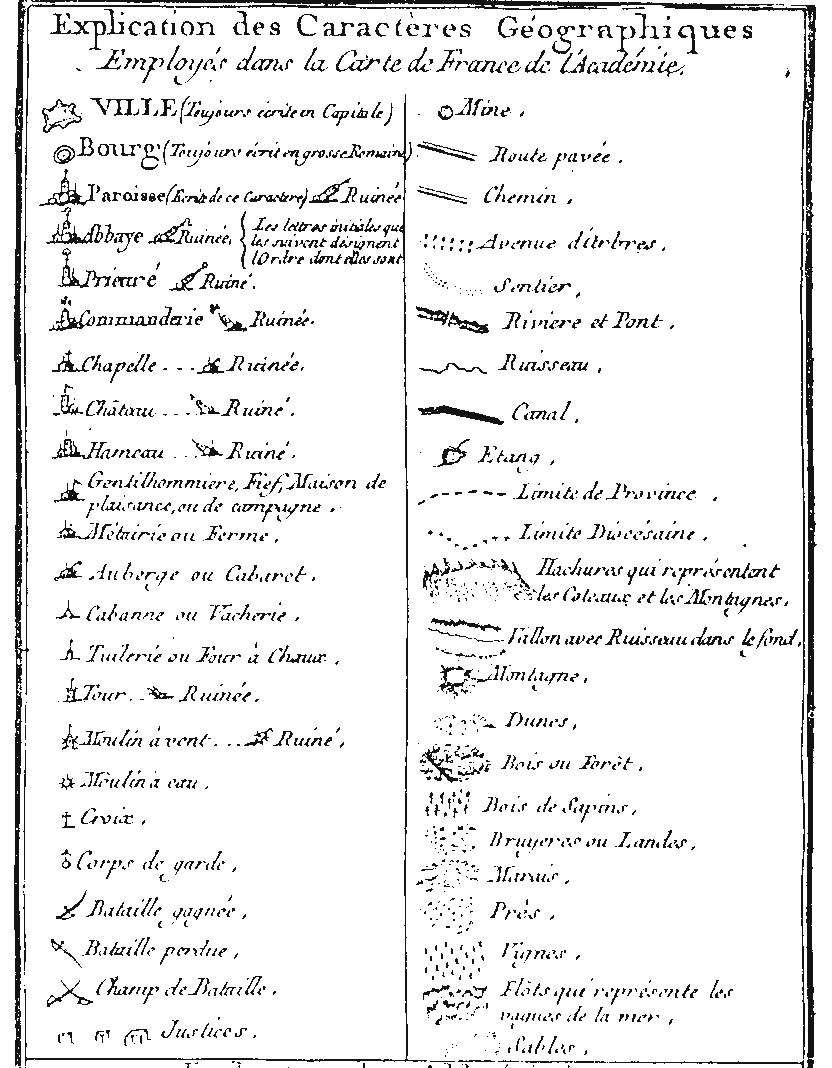 Explication des Caractères Géographiques
Employés dans la Carte de France de l'Académie.
VILLE (Toujours écrite en Capitale)
Bourg (Toujours écrit en grosse Romaine)
Paroisse (Ecrite de ce Caractere) Ruinée
Abbaye Ruinée. { Les lettres initiales que
les suivent désignent
l'Ordre dont elles sont
Prieuré Ruiné.
Commanderie Ruinée.
Chapelle ... Ruinée.
Château ... Ruiné.
Hameau ... Ruiné.
Gentilhommiere, Fief, Maison de
plaisance, ou de campagne.
Métairie ou Ferme.
Auberge ou Cabaret.
Cabanne ou Vacherie.
Tuilerie ou Four à Chaux.
Tour ... Ruinée.
Moulin à vent ... Ruiné.
Moulin à eau.
Croix.
Corps de garde.
Bataille gagnée.
Bataille perdue.
Champ de Bataille.
Justices.
Mine.
Route pavée.
Chemin.
Avenue d'Arbres.
Sentier.
Riviere et Pont.
Ruisseau.
Canal.
Etang.
Limite de Province.
Limite Diocésaine.
Hachures qui représentent
les Coteaux et les Montagnes.
Vallon avec Ruisseau dans le fond.
Montagne.
Dunes.
Bois ou Forêt.
Bois de Sapins.
Bruyeres ou Landes.
Marais.
Prés.
Vignes.
Flots qui représente les
vagues de la mer.
Sables.